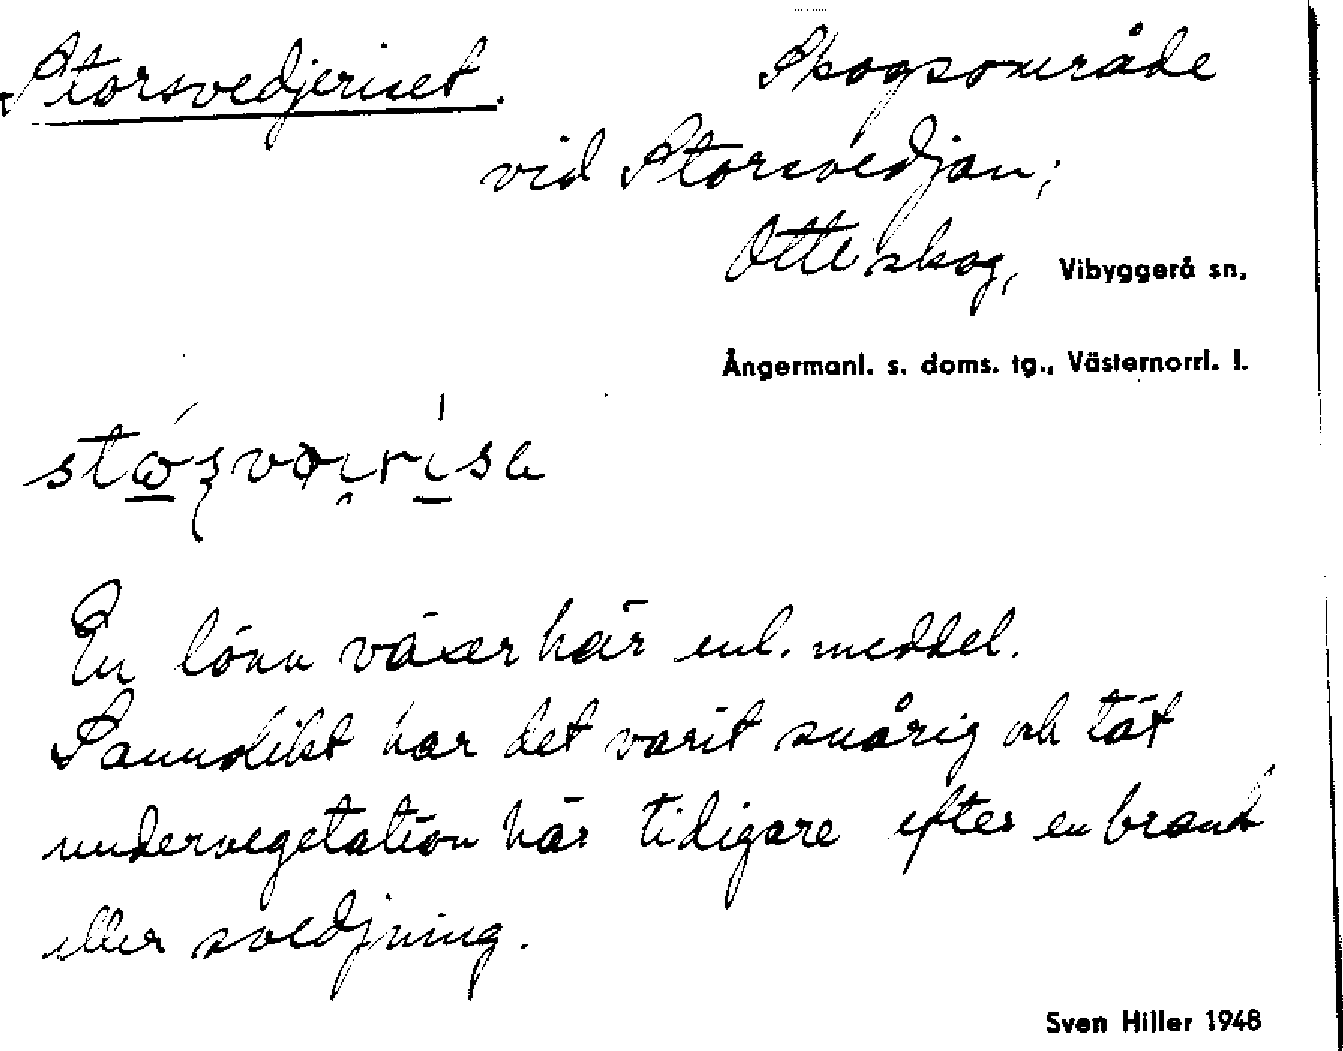 Storsvedjeriset. Skogsområde
vid Storsvedjan;
Otterskog, Vibyggerå sn.
Ångermanl. s. doms. tg., Västernorrl. l.
En lönn växer här enl. meddel.
Sannolikt har det varit snårig och tät
undervegetation här tidigare efter en brand
eller svedjning.
Sven Hiller 1948